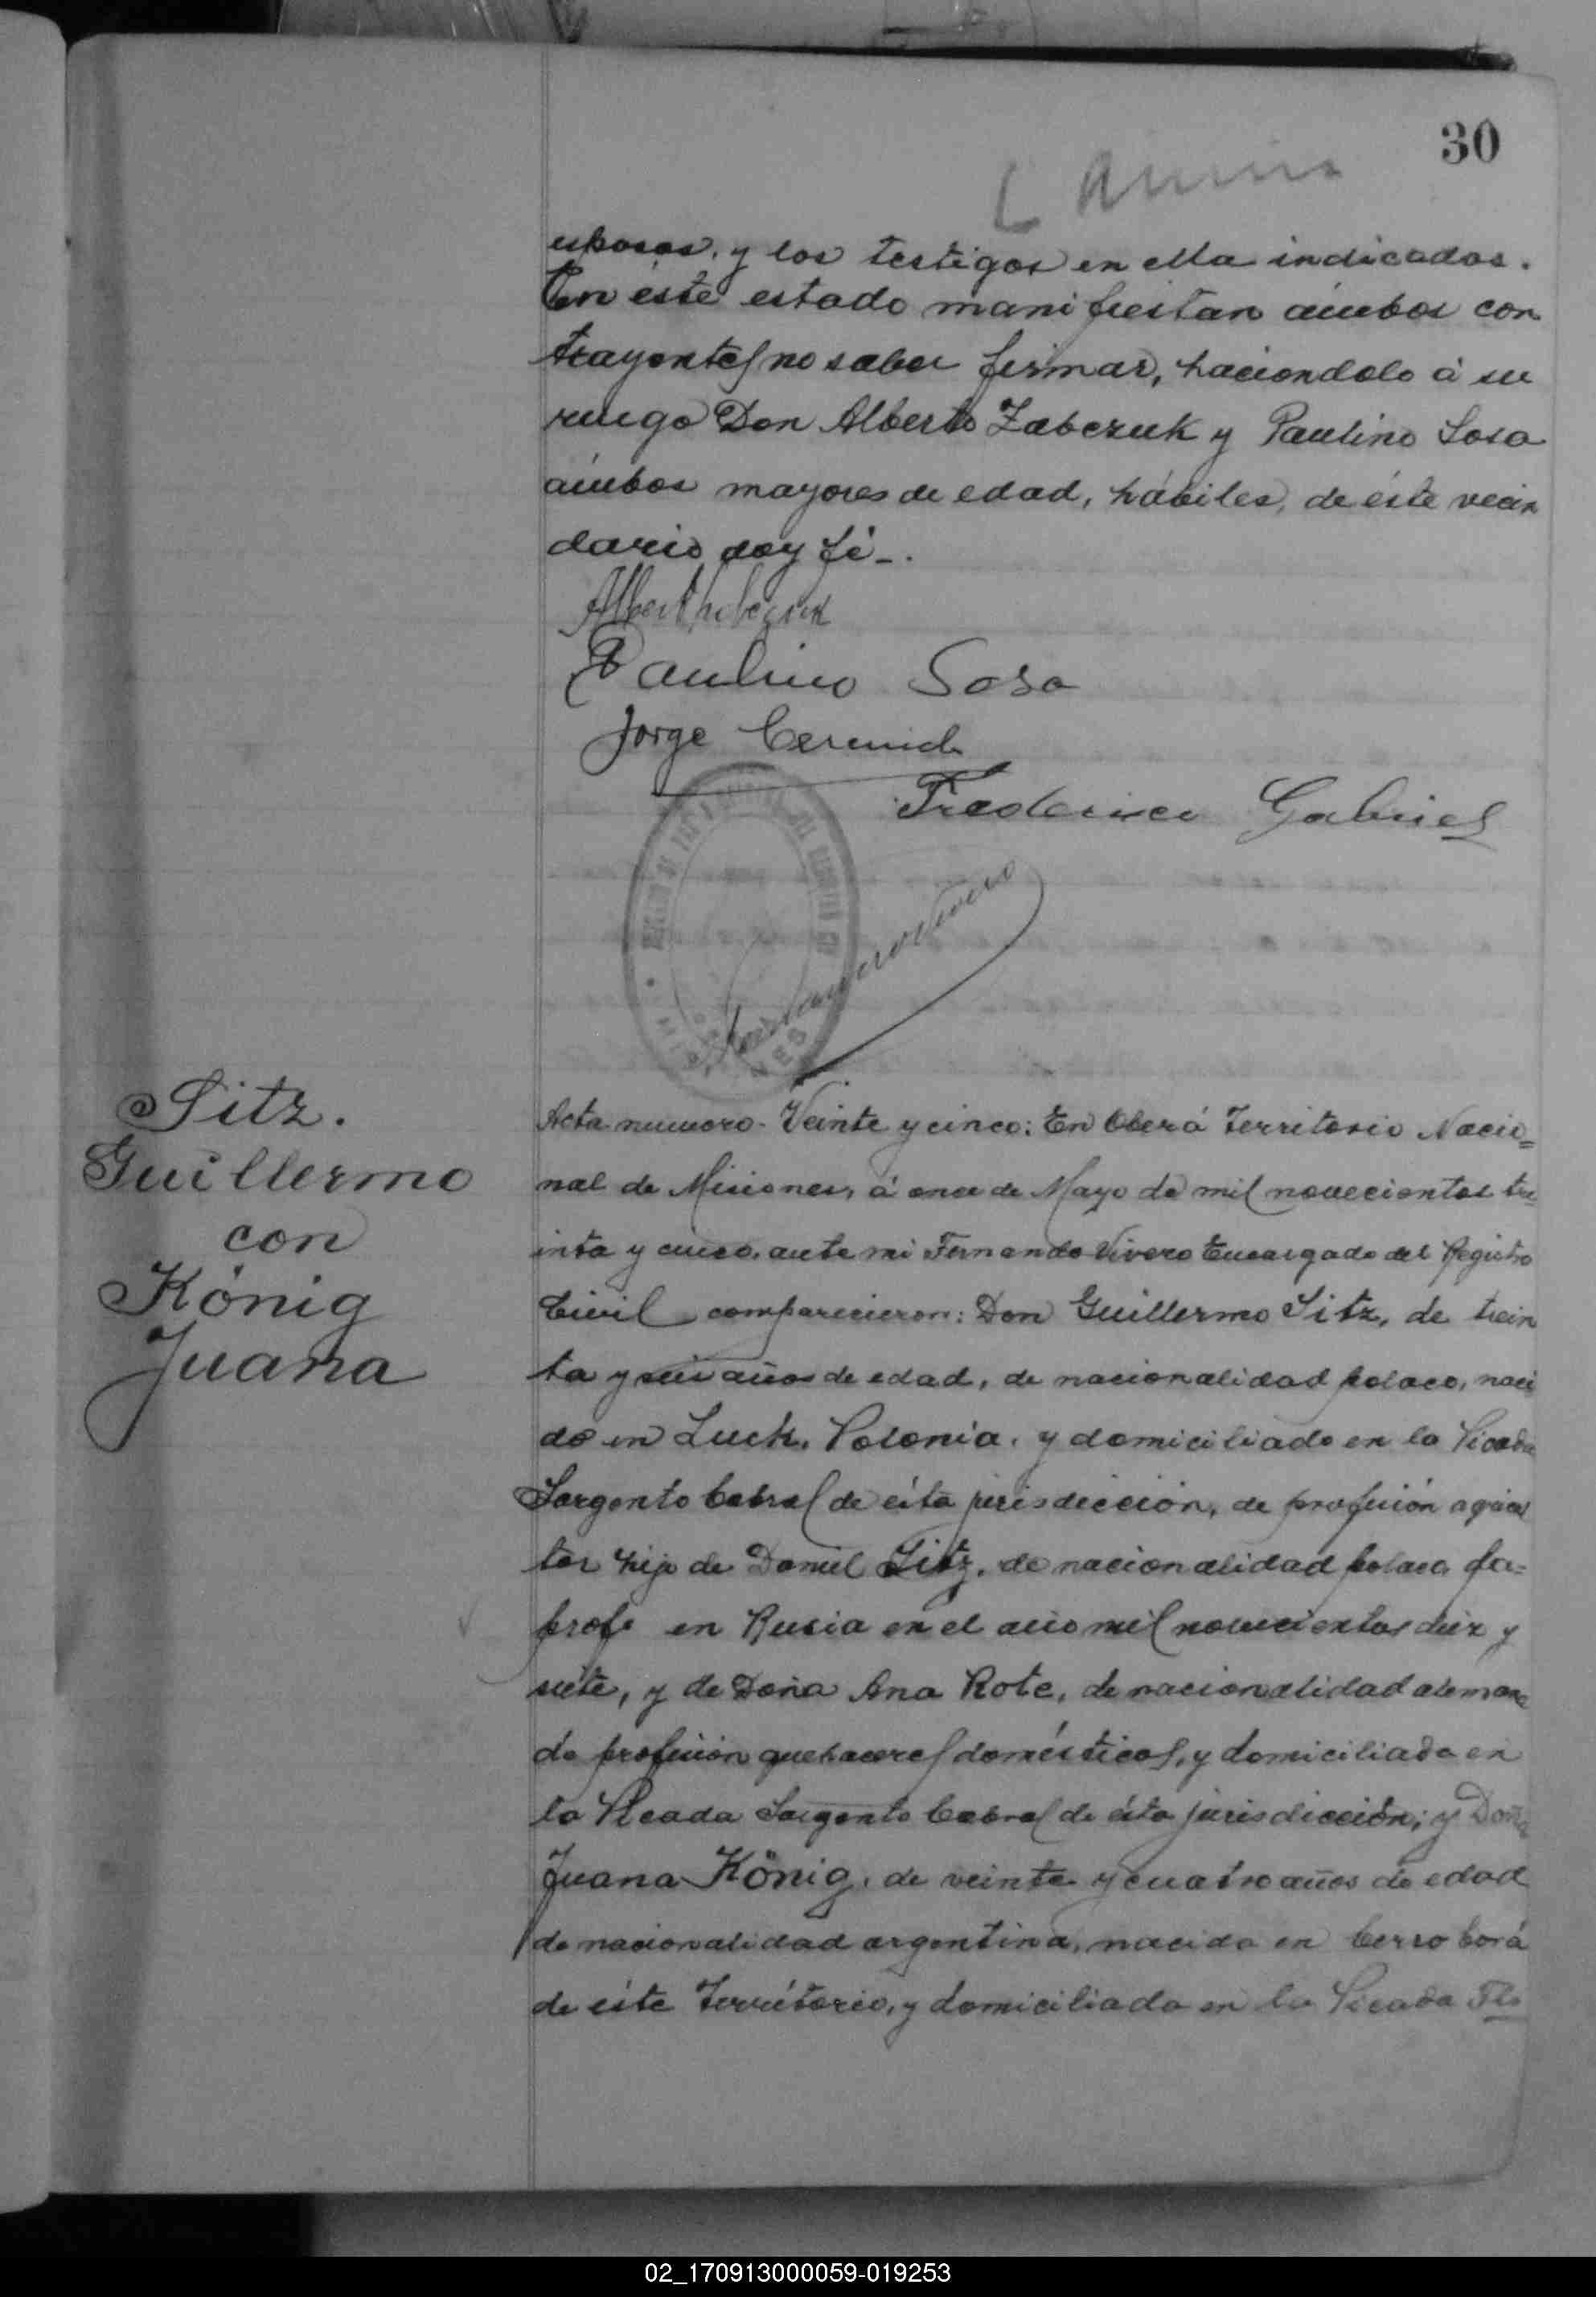 30
esposos, y los testigos en ella indicados.
En éste estado manifiestan ámbos con
trayentes no saber firmar, haciondolo á su
ruego Don Alberto Zabczuk y Paulino Sosa
ámbos mayores de edad, hábiles, de éste vecin
dario doy fé-.
Paulino Sosa
Jorge
Frederico Gabriel
Sitz.
Guillermo
con
König
Juana
Acta numero. Veinte y cinco: En Oberá Territorio Nacio=
nal de Misiones, á once de Mayo de mil novecientos tre
inta y cinco, ante mi Fernando Vivero Encargado del Registro
Civil comparecieron: Don Guillermo Sitz, de trein
ta y seis años de edad, de nacionalidad polaco, naci
do en Luck, Polonia, y domiciliado en la Picada
Sargento Cabral de ésta jurisdicción, de profesión agricul
tor hijo de Daniel Sitz, de nacionalidad polaca fa=
en Rusia en el año mil novecientos diez y
siete, y de Doña Ana Rote, de nacionalidad alemana
de profesión quehaceres domésticos, y domiciliada en
la Picada Sargento Cabral de ésta jurisdicción; y Doña
Juana König, de veinte y cuatro años de edad
de nacionalidad argentina, nacida en Cerro Corá
de éste Território, y domiciliada en la Picada
02_170913000059-019253